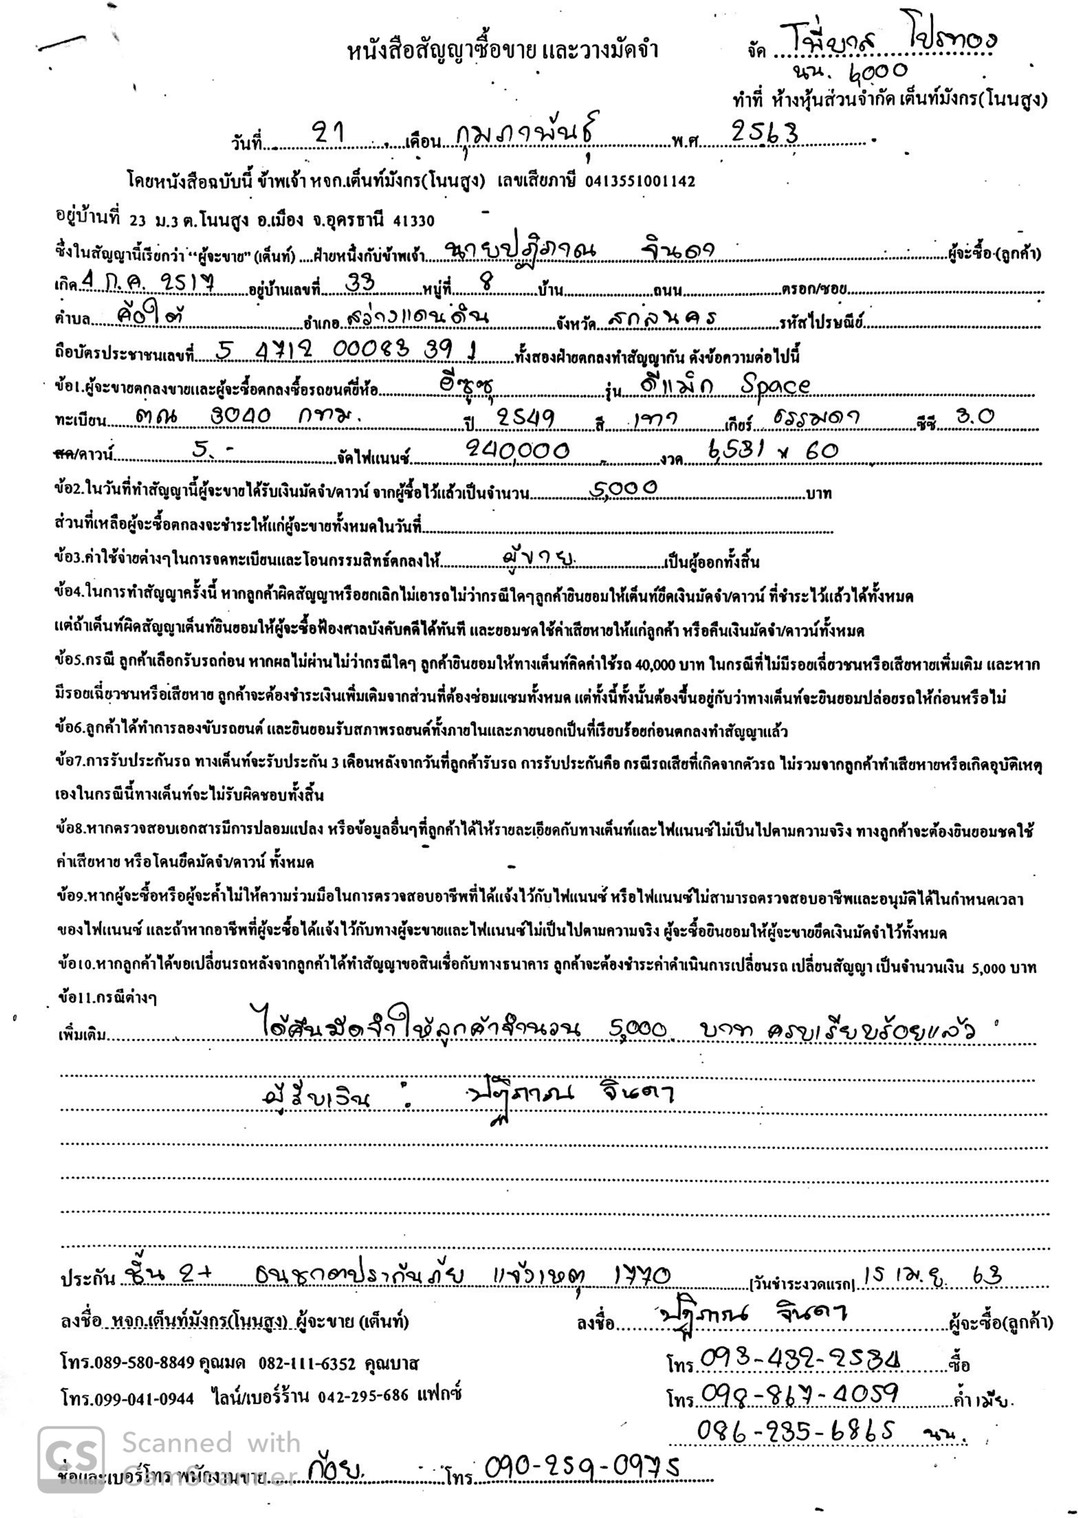 หนังสือสัญญาซื้อขาย และวางมัดจำ
จัด โพี่บาส โปรทอง
นน. 6000
ทำที่ ห้างหุ้นส่วนจำกัด เต็นท์มังกร(โนนสูง)
วันที่ 21 เดือน กุมภาพันธุ์ พ.ศ 2563
โดยหนังสือฉบับนี้ ข้าพเจ้า หจก.เต็นท์มังกร(โนนสูง) เลขเสียภาษี 0413551001142
อยู่บ้านที่ 23 ม.3 ต.โนนสูง อ.เมือง จ.อุดรธานี 41330
ซึ่งในสัญญานี้เรียกว่า "ผู้จะขาย" (เต็นท์) ....ฝ่ายหนึ่งกับข้าพเจ้า นายปฏิภาณ จินดา ผู้จะซื้อ (ลูกค้า)
เกิด 4 ก.ค. 2517 อยู่บ้านเลขที่ 33 หมู่ที่ 8 บ้าน ถนน ตรอก/ซอย
ตำบล ค้อใต้ อำเภอ สว่างแดนดิน จังหวัด สกลนคร รหัสไปรษณีย์
ถือบัตรประชาชนเลขที่ 5 4712 00083 39 1 ทั้งสองฝ่ายตกลงทำสัญญากัน ดังข้อความต่อไปนี้
ข้อ1.ผู้จะขายตกลงขายและผู้จะซื้อตกลงซื้อรถยนต์ยี่ห้อ อีซูซุ รุ่น ดีแม็ก Space
ทะเบียน ตณ 3040 กทม. ปี 2549 สี เทา เกียร์ ธรรมดา ซีซี 3.0
สด/ดาวน์ 5.- จัดไฟแนนซ์ 240,000 งวด 6,531 x 60
ข้อ2.ในวันที่ทำสัญญานี้ผู้จะขายได้รับเงินมัดจำ/ดาวน์ จากผู้ซื้อไว้แล้วเป็นจำนวน 5,000 บาท
ส่วนที่เหลือผู้จะซื้อตกลงจะชำระให้แก่ผู้จะขายทั้งหมดในวันที่
ข้อ3.ค่าใช้จ่ายต่างๆในการจดทะเบียนและโอนกรรมสิทธ์ตกลงให้ ผู้ขาย เป็นผู้ออกทั้งสิ้น
ข้อ4.ในการทำสัญญาครั้งนี้ หากลูกค้าผิดสัญญาหรือยกเลิกไม่เอารถไม่ว่ากรณีใดๆลูกค้ายินยอมให้เต็นท์ยึดเงินมัดจำ/ดาวน์ ที่ชำระไว้แล้วได้ทั้งหมด
แต่ถ้าเต็นท์ผิดสัญญาเต็นท์ยินยอมให้ผู้จะซื้อฟ้องศาลบังคับคดีได้ทันที และยอมชดใช้ค่าเสียหายให้แก่ลูกค้า หรือคืนเงินมัดจำ/ดาวน์ทั้งหมด
ข้อ5.กรณี ลูกค้าเลือกรับรถก่อน หากผลไม่ผ่านไม่ว่ากรณีใดๆ ลูกค้ายินยอมให้ทางเต็นท์คิดค่าใช้รถ 40,000 บาท ในกรณีที่ไม่มีรอยเฉี่ยวชนหรือเสียหายเพิ่มเติม และหาก
มีรอยเฉี่ยวชนหรือเสียหาย ลูกค้าจะต้องชำระเงินเพิ่มเติมจากส่วนที่ต้องซ่อมแซมทั้งหมด แต่ทั้งนี้ทั้งนั้นต้องขึ้นอยู่กับว่าทางเต็นท์จะยินยอมปล่อยรถให้ก่อนหรือไม่
ข้อ6.ลูกค้าได้ทำการลองขับรถยนต์ และยินยอมรับสภาพรถยนต์ทั้งภายในและภายนอกเป็นที่เรียบร้อยก่อนตกลงทำสัญญาแล้ว
ข้อ7.การรับประกันรถ ทางเต็นท์จะรับประกัน 3 เดือนหลังจากวันที่ลูกค้ารับรถ การรับประกันคือ กรณีรถเสียที่เกิดจากตัวรถ ไม่รวมจากลูกค้าทำเสียหายหรือเกิดอุบัติเหตุ
เองในกรณีนี้ทางเต็นท์จะไม่รับผิดชอบทั้งสิ้น
ข้อ8.หากตรวจสอบเอกสารมีการปลอมแปลง หรือข้อมูลอื่นๆที่ลูกค้าได้ให้รายละเอียดกับทางเต็นท์และไฟแนนซ์ไม่เป็นไปตามความจริง ทางลูกค้าจะต้องยินยอมชดใช้
ค่าเสียหาย หรือโดนยึดมัดจำ/ดาวน์ ทั้งหมด
ข้อ9.หากผู้จะซื้อหรือผู้จะค้ำไม่ให้ความร่วมมือในการตรวจสอบอาชีพที่ได้แจ้งไว้กับไฟแนนซ์ หรือไฟแนนซ์ไม่สามารถตรวจสอบอาชีพและอนุมัติได้ในกำหนดเวลา
ของไฟแนนซ์ และถ้าหากอาชีพที่ผู้จะซื้อได้แจ้งไว้กับทางผู้จะขายและไฟแนนซ์ไม่เป็นไปตามความจริง ผู้จะซื้อยินยอมให้ผู้จะขายยึดเงินมัดจำไว้ทั้งหมด
ข้อ10.หากลูกค้าได้ขอเปลี่ยนรถหลังจากลูกค้าได้ทำสัญญาขอสินเชื่อกับทางธนาคาร ลูกค้าจะต้องชำระค่าดำเนินการเปลี่ยนรถ เปลี่ยนสัญญา เป็นจำนวนเงิน 5,000 บาท
ข้อ11.กรณีต่างๆ
เพิ่มเติม ได้คืนมัดจำให้ลูกค้าจำนวน 5,000 บาท ครบเรียบร้อยแล้ว
ผู้รับเงิน : ปฏิภาณ จินดา
ประกัน ชั้น 2+ ธนชาตประกันภัย แจ้งเหตุ 1770 [วันชำระงวดแรก] 15 เม.ย. 63
ลงชื่อ หจก.เต็นท์มังกร(โนนสูง) ผู้จะขาย (เต็นท์) ลงชื่อ ปฏิภาณ จินดา ผู้จะซื้อ(ลูกค้า)
โทร.089-580-8849 คุณมด 082-111-6352 คุณบาส โทร 093-432-2534 ซื้อ
โทร.099-041-0944 ไลน์/เบอร์ร้าน 042-295-686 แฟกซ์ โทร 098-867-4059 ค้ำ เมีย.
086-235-6865 นน.
CS Scanned with CamScanner
ชื่อและเบอร์โทร พนักงานขาย ก้อย. โทร 090-259-0975